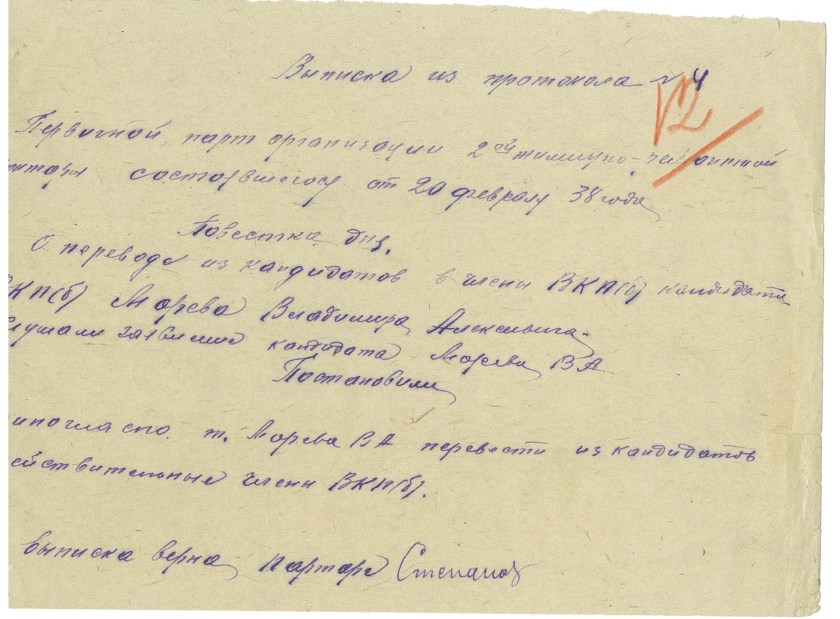 Выписка из протокола № 4
12
Первичной парт организации 2ой
нторы состоявшегося от 20 февраля 38 года
Повестка дня.
О переводе из кандидатов в члены ВКП(б) кандидата
ВКП(б)Морева Владимира Алексеевича
Слушали заявление кандидата Морева ВА
Постановили
иногласно т. Морева ВА перевести из кандидатов
ействительные члены ВКП(б).
выписка верна парторг Степанов